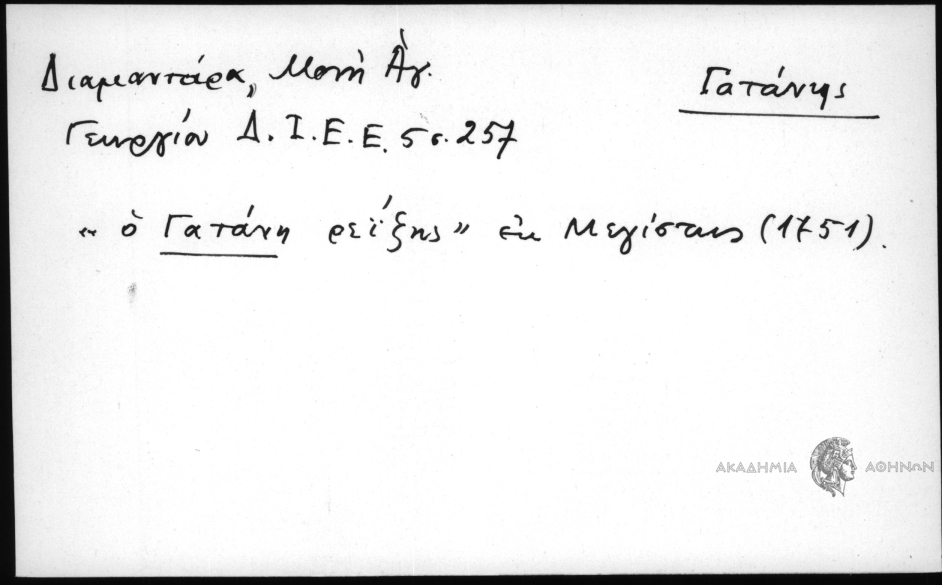 Διαμαντάρα, Μονὴ Ἁγ.
Γατάνης
Γεωργίου Δ.Ι.Ε.Ε. 5 σ. 257
« ὁ Γατάνη ρεΐζης » ἐκ Μεγίστης (1751).
ΑΚΑΔΗΜΙΑ ΑΘΗΝΩΝ